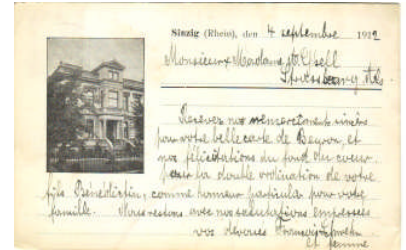 Sinzig (Rhein), den 4 septembre 1912
Monsieur & Madame
Strassbourg Als
Recevez nos remerciements sincères
pour votre belle carte de Beuron, et
nos félicitations du fond du coeur
pour la double ordination de votre
fils Bénédictin, comme honneur particulier pour votre
famille. Nous restons avec nos salutations empressées
vos dévoués François
et femme